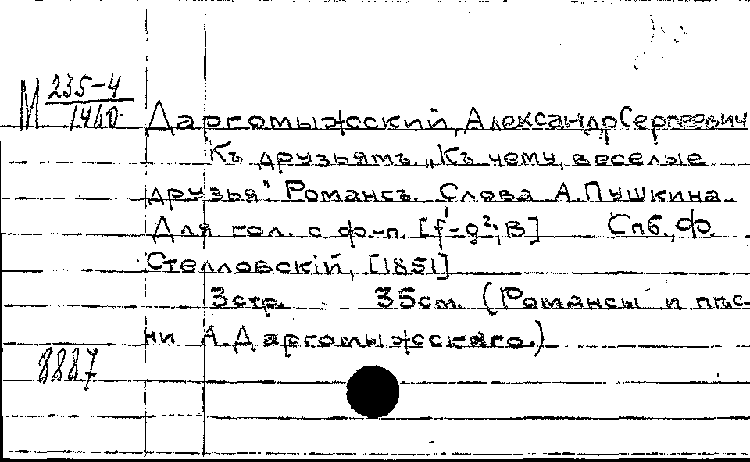 М 235-4
1460
Даргомыжский, Александр Сергеевич
Къ друзьямъ. „Къ чему, веселые
друзья". Романсъ. Слова А. Пушкина.
Для гол. с ф.-п. [f¹-g²; B] Спб., Ф.
Стелловскій, [1851]
3 стр. 35 см. (Романсы и пѣс-
ни А. Даргомыжскаго.)
8887